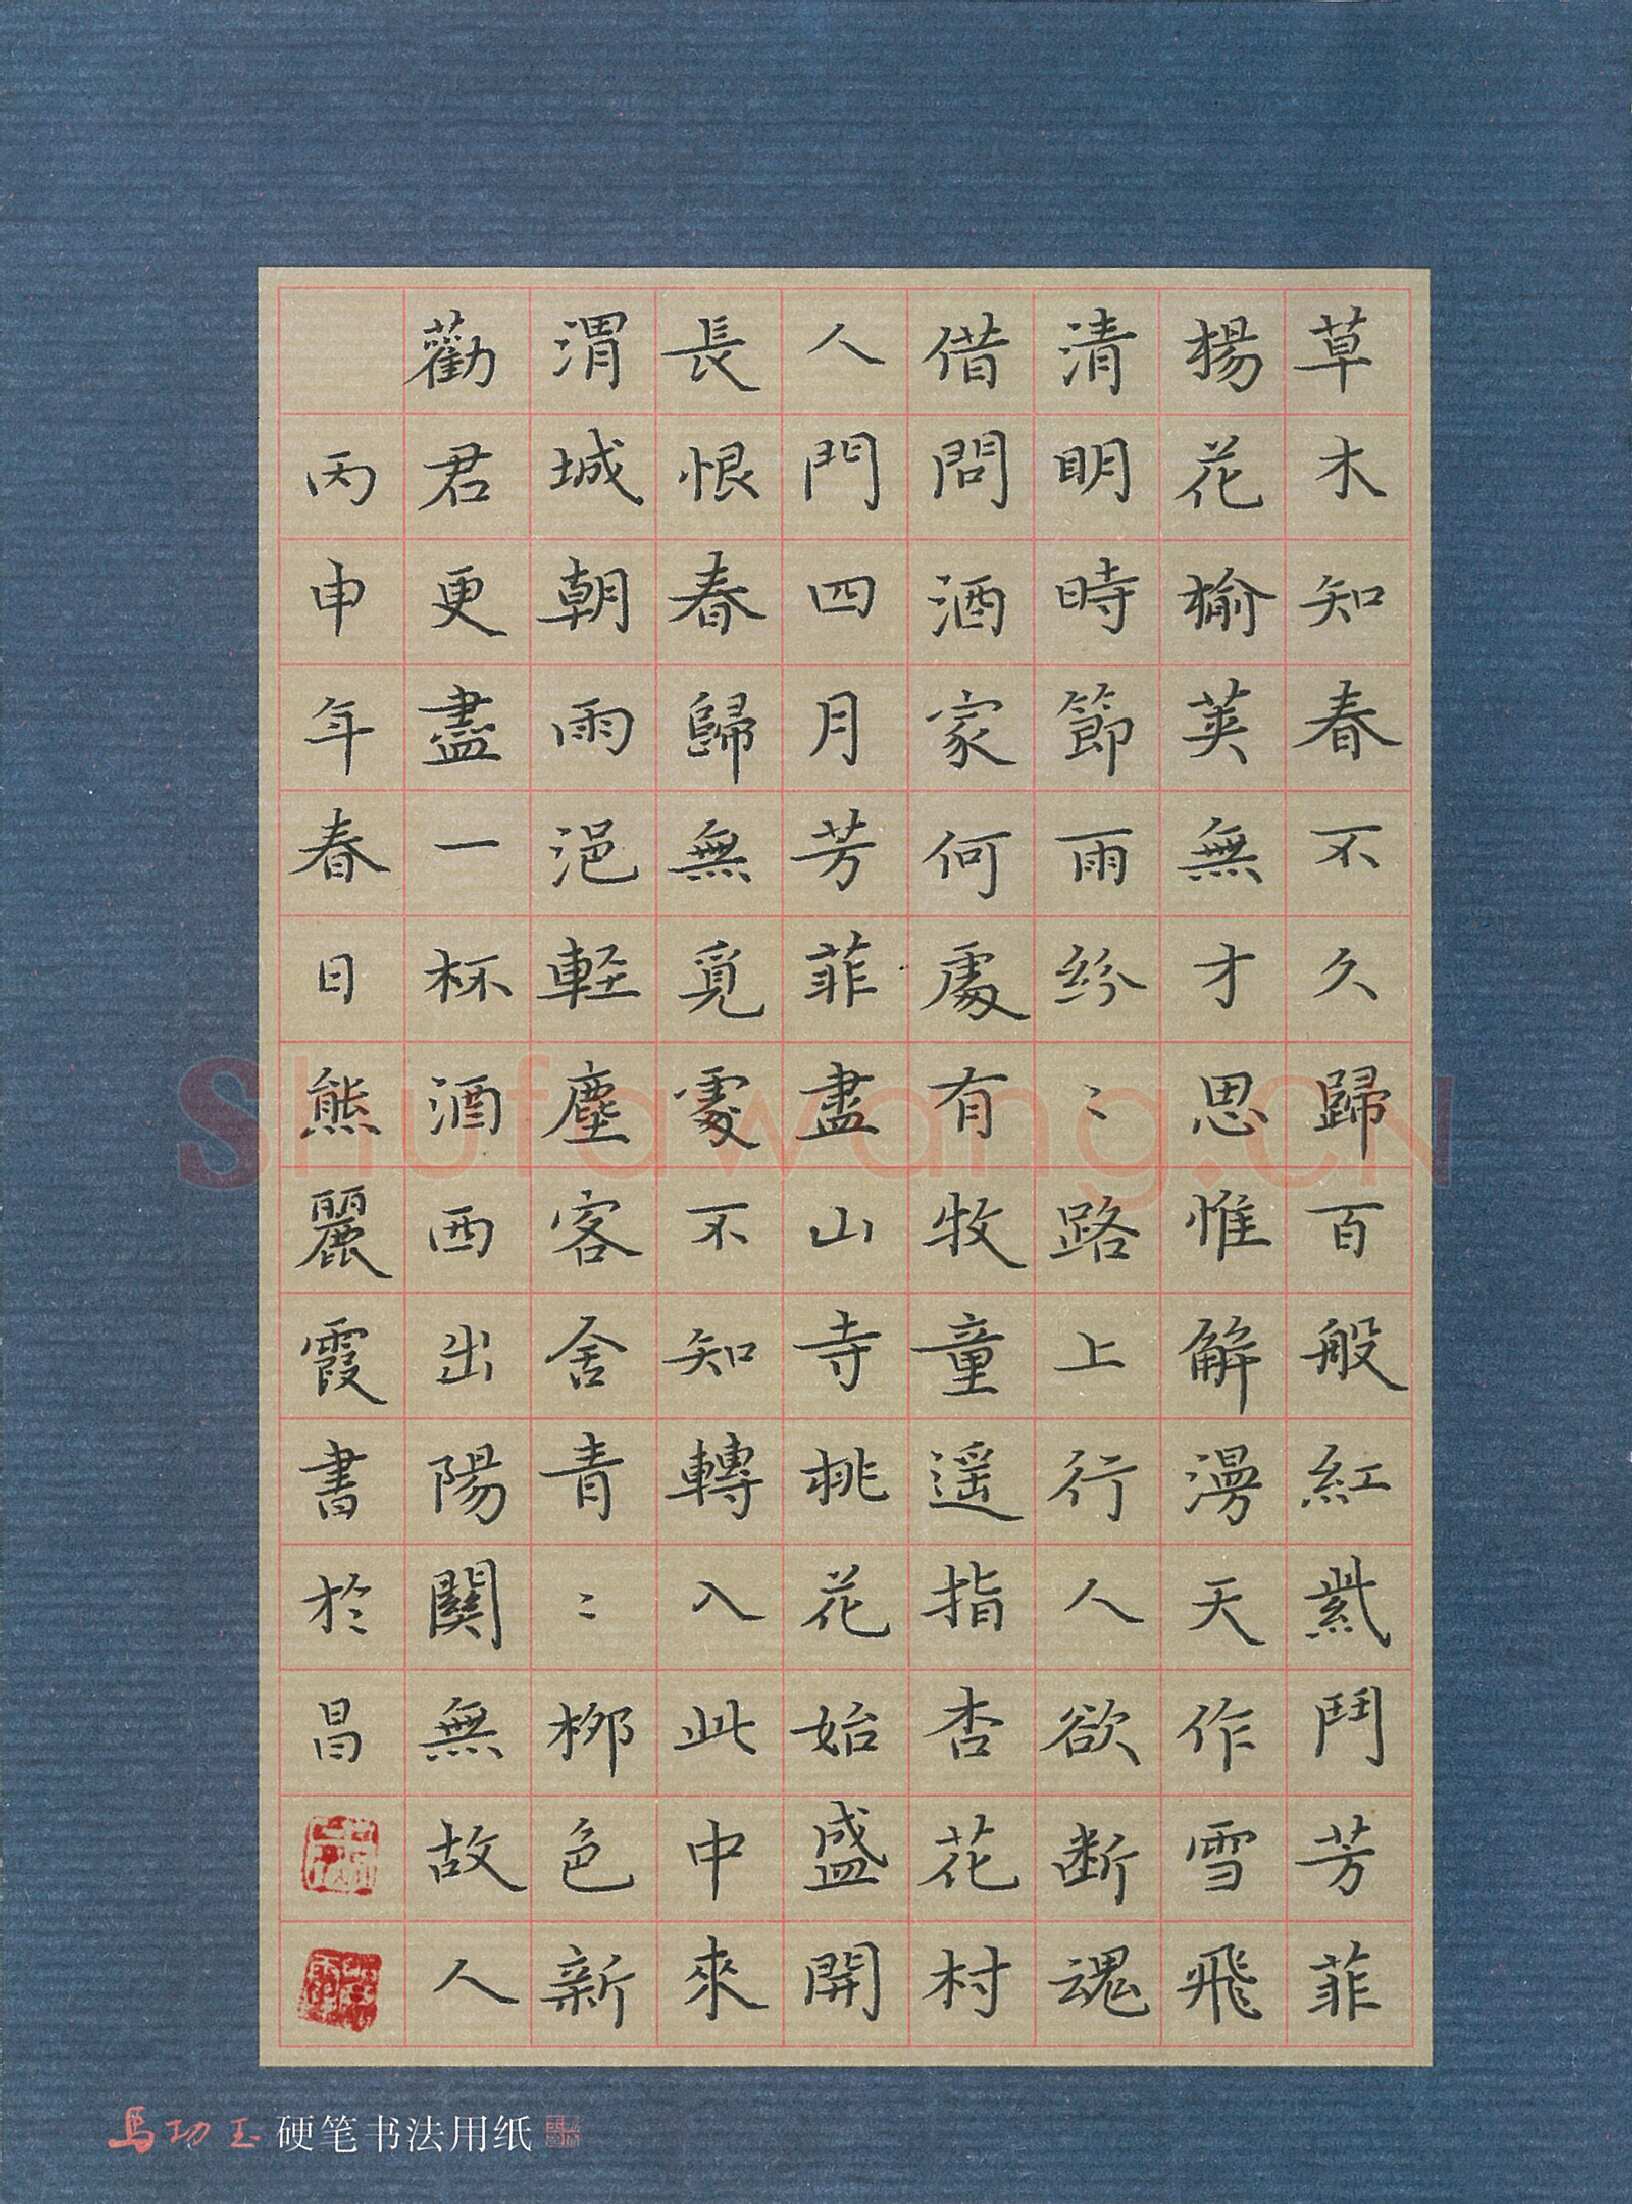 草木知春不久歸百般紅紫鬥芳菲
楊花榆莢無才思惟解漫天作雪飛
清明時節雨紛〻路上行人欲断魂
借問酒家何處有牧童遥指杏花村
人門四月芳菲盡山寺桃花始盛開
長恨春歸無覓處不知轉入此中來
渭城朝雨浥輕塵客舍青〻柳色新
勸君更盡一杯酒西出陽關無故人
丙申年春日熊麗霞書於昌
Shufawang.CN
馬功玉 硬笔书法用纸